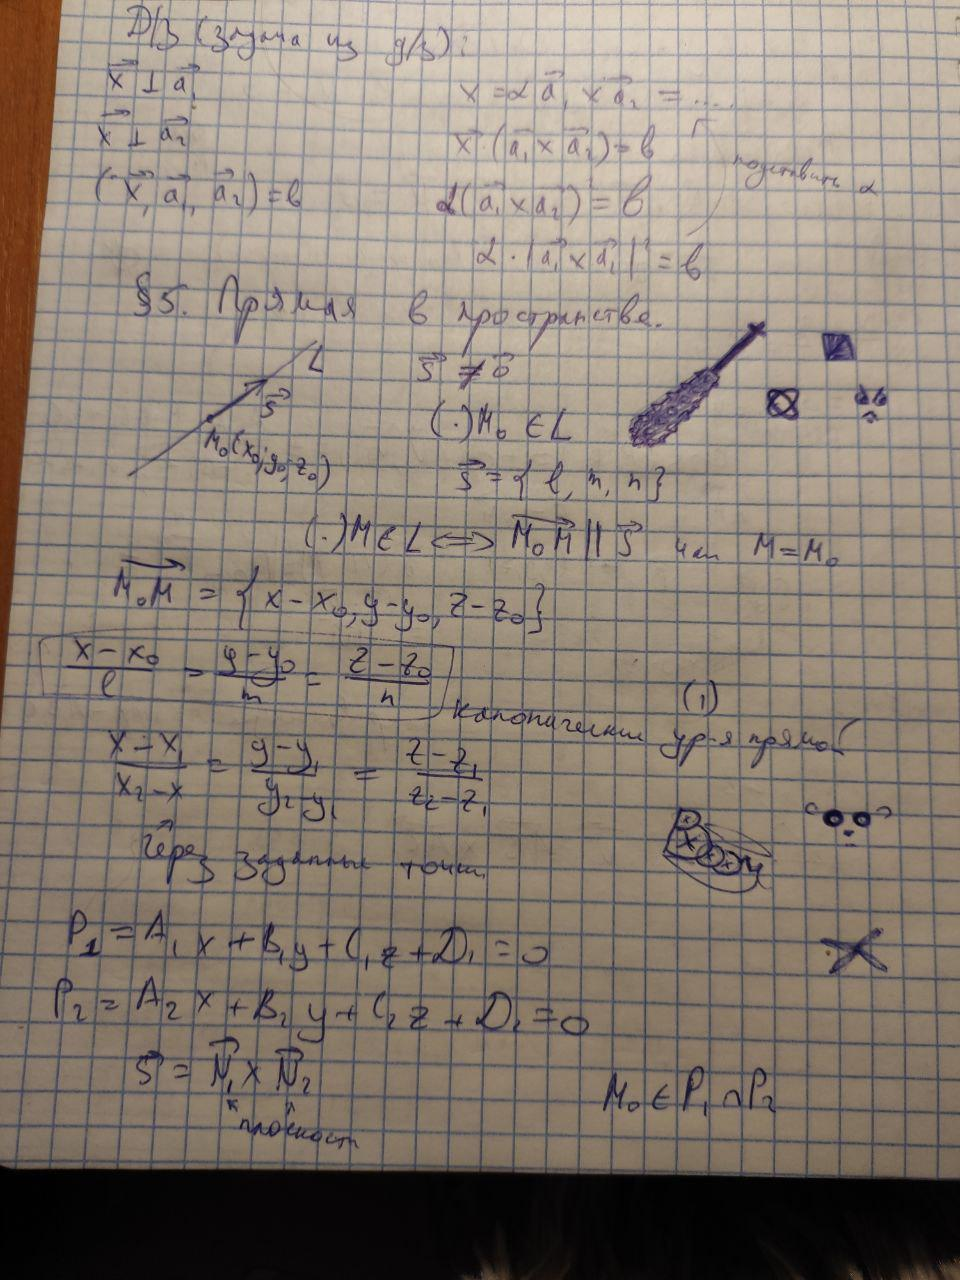 Д/З (задача из д/з):
x ⊥ a₁
x = α a₁ × a₂ = ....
x ⊥ a₂
x · (a₁ × a₂) = b
подставить α
(x, a₁, a₂) = b
α(a₁ × a₂)² = b
α · |a₁ × a₁|² = b
§5. Прямая в пространстве.
L
s ≠ 0
s
(·) M₀ ∈ L
M₀(x₀, y₀, z₀)
s = {l, m, n}
(·) M ∈ L ⟺ M₀M || s или M = M₀
M₀M = {x − x₀, y − y₀, z − z₀}
(x − x₀)/l = (y − y₀)/m = (z − z₀)/n
(1)
канонические ур-я прямой
(x − x₁)/(x₂ − x) = (y − y₁)/(y₂ − y₁) = (z − z₁)/(z₂ − z₁)
Через заданные точки
P₁ = A₁x + B₁y + C₁z + D₁ = 0
P₂ = A₂x + B₂y + C₂z + D₂ = 0
s = N₁ × N₂
M₀ ∈ P₁ ∩ P₂